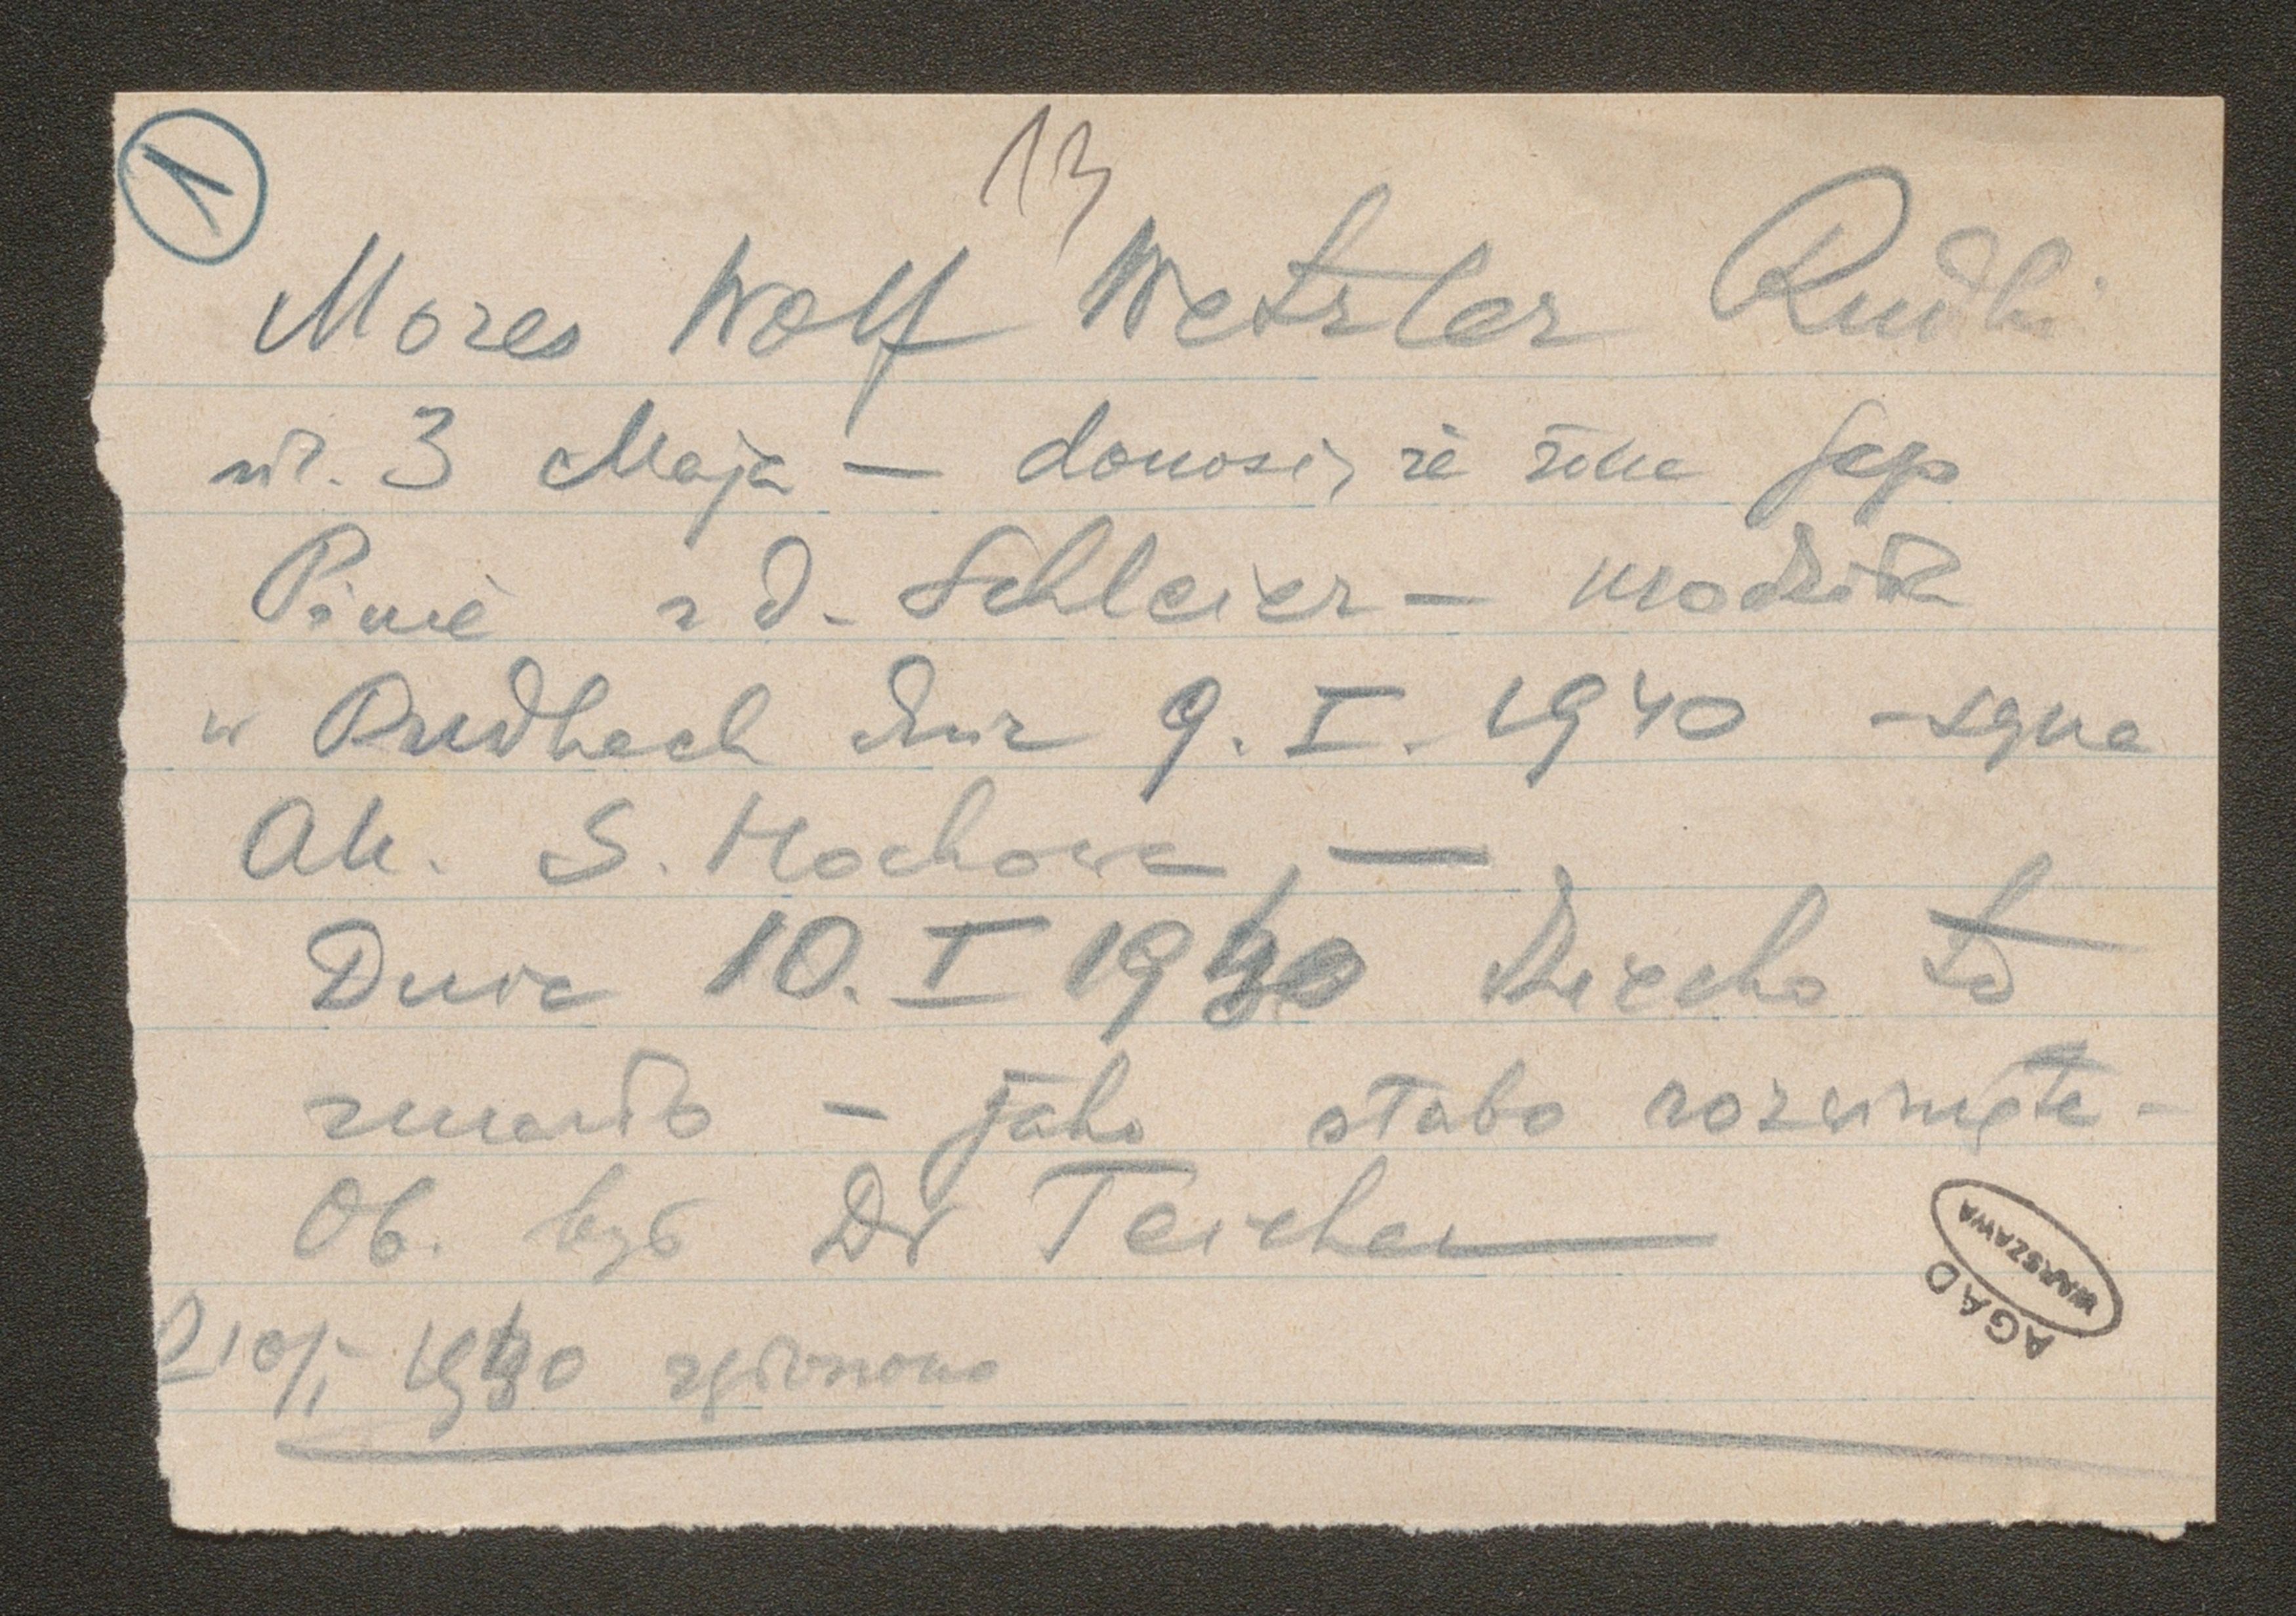 1
13
Mozes Wolf Wetzler Rudki
ul. 3 Maja — donosi, że żona jego
Pinie z d. Schleier — urodziła
w Rudkach dnia 9. I. 1940 - syna
Ak. S. Hochowa —
Dnia 10. I 1940 Dziecko to
zmarło - jako słabo rozwinięte -
Ob. był Dr Teicher
D 10/I 1940 zgłoszono
AGAD
WARSZAWA